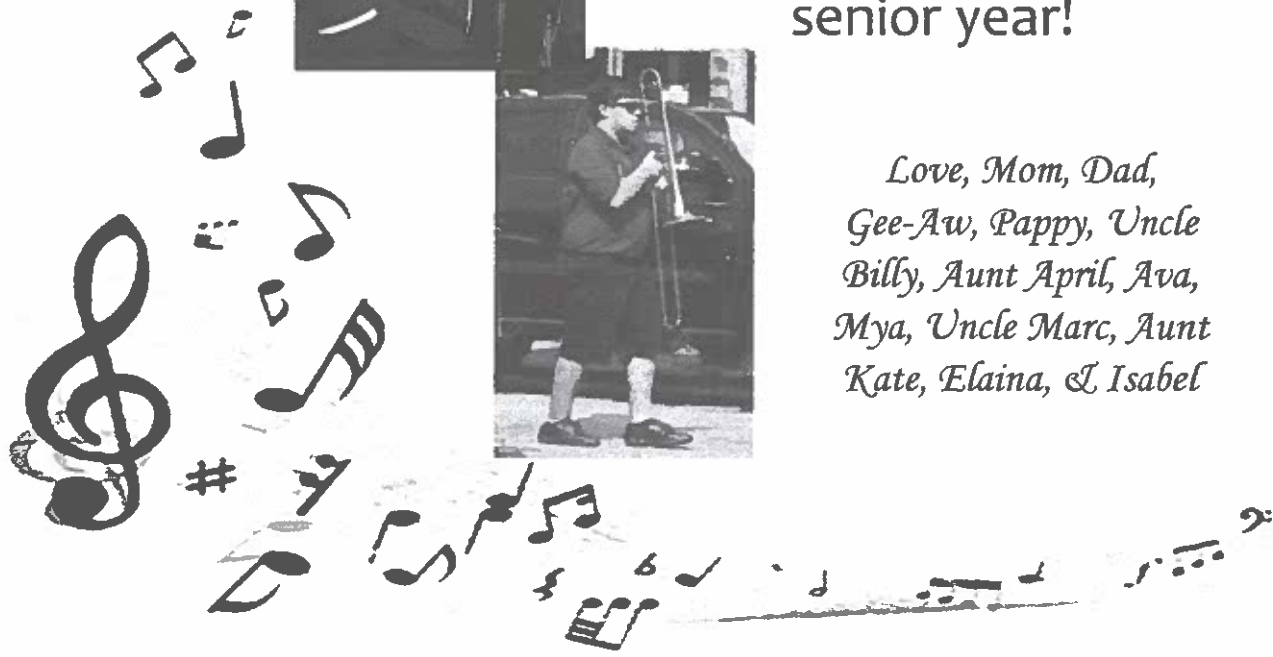 senior year!
Love, Mom, Dad,
Gee-Aw, Pappy, Uncle
Billy, Aunt April, Ava,
Mya, Uncle Marc, Aunt
Kate, Elaina, & Isabel